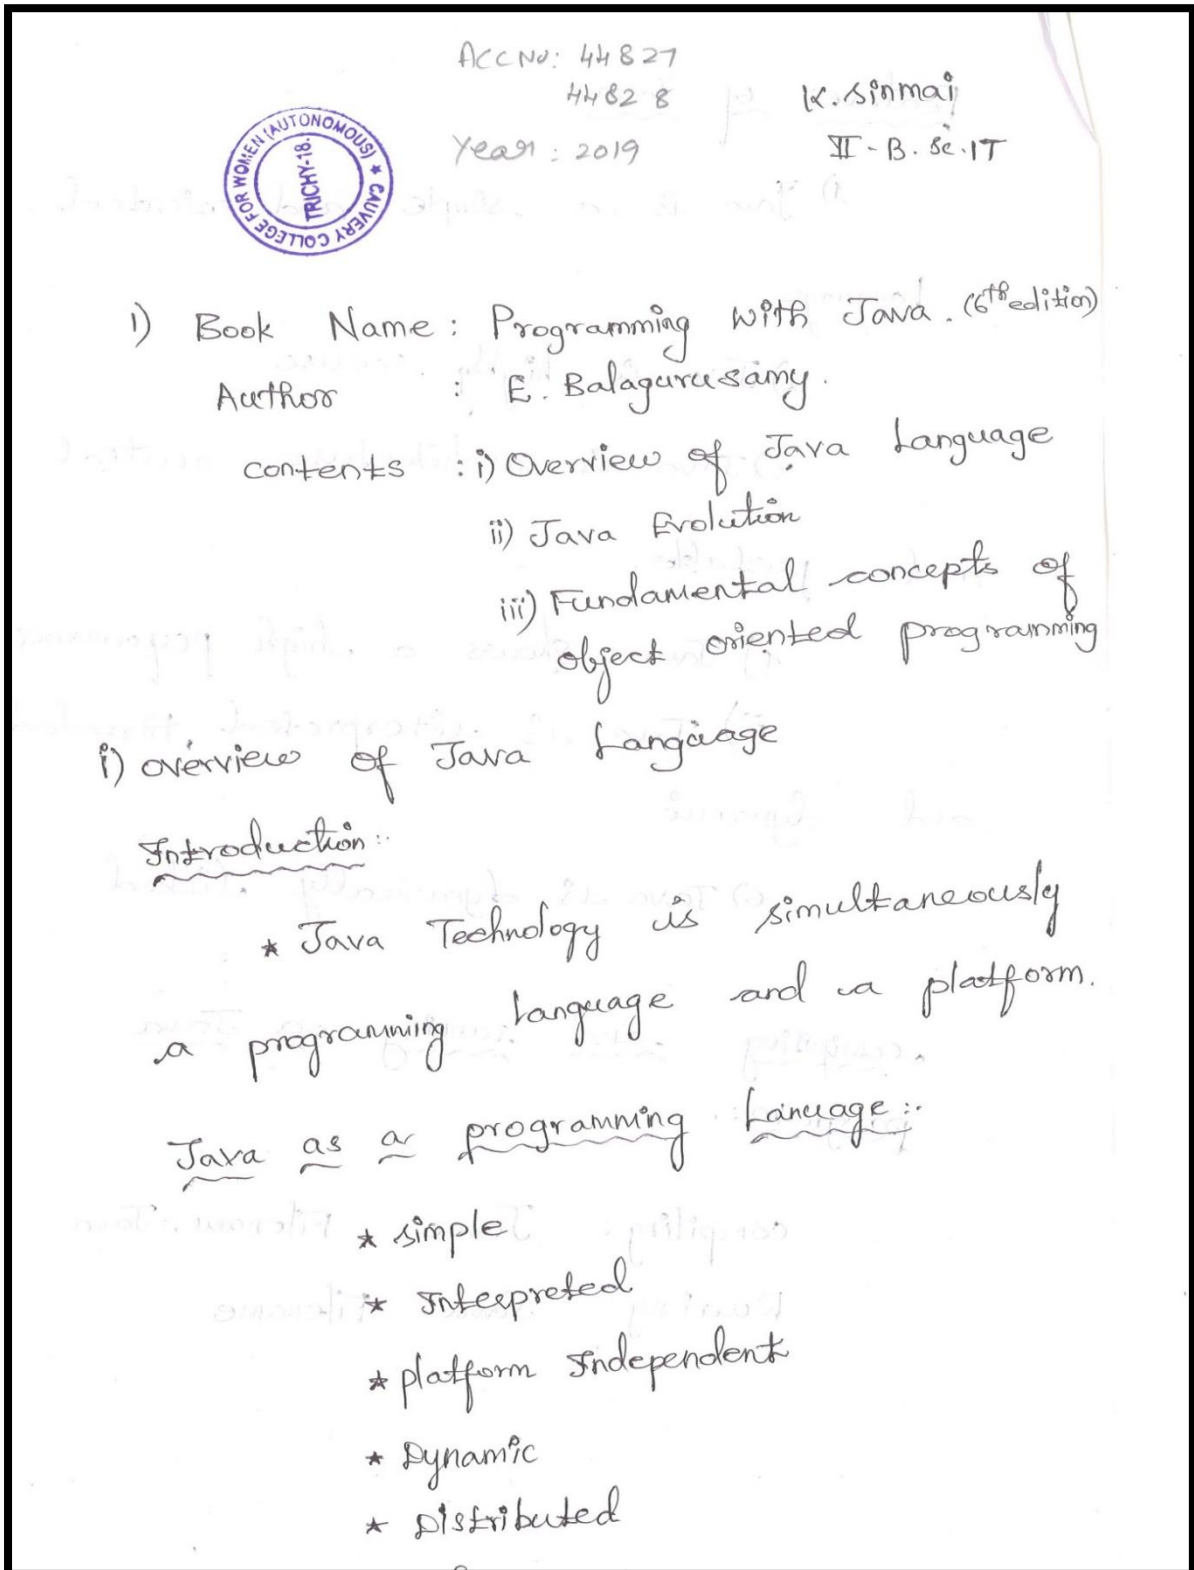 ACC No: 44827
44828
K. Sinmai
Year : 2019
II - B. Sc. IT
CAUVERY COLLEGE FOR WOMEN (AUTONOMOUS) ★
TRICHY-18.
1) Book Name : Programming with Java. (6th edition)
Author : E. Balagurusamy.
contents : i) Overview of Java Language
ii) Java Evolution
iii) Fundamental concepts of
object oriented programming
i) overview of Java Language
Introduction:-
* Java Technology is simultaneously
a programming language and a platform.
Java as a programming Lanuage :-
* simple
* Interpreted
* platform Independent
* Dynamic
* Distributed